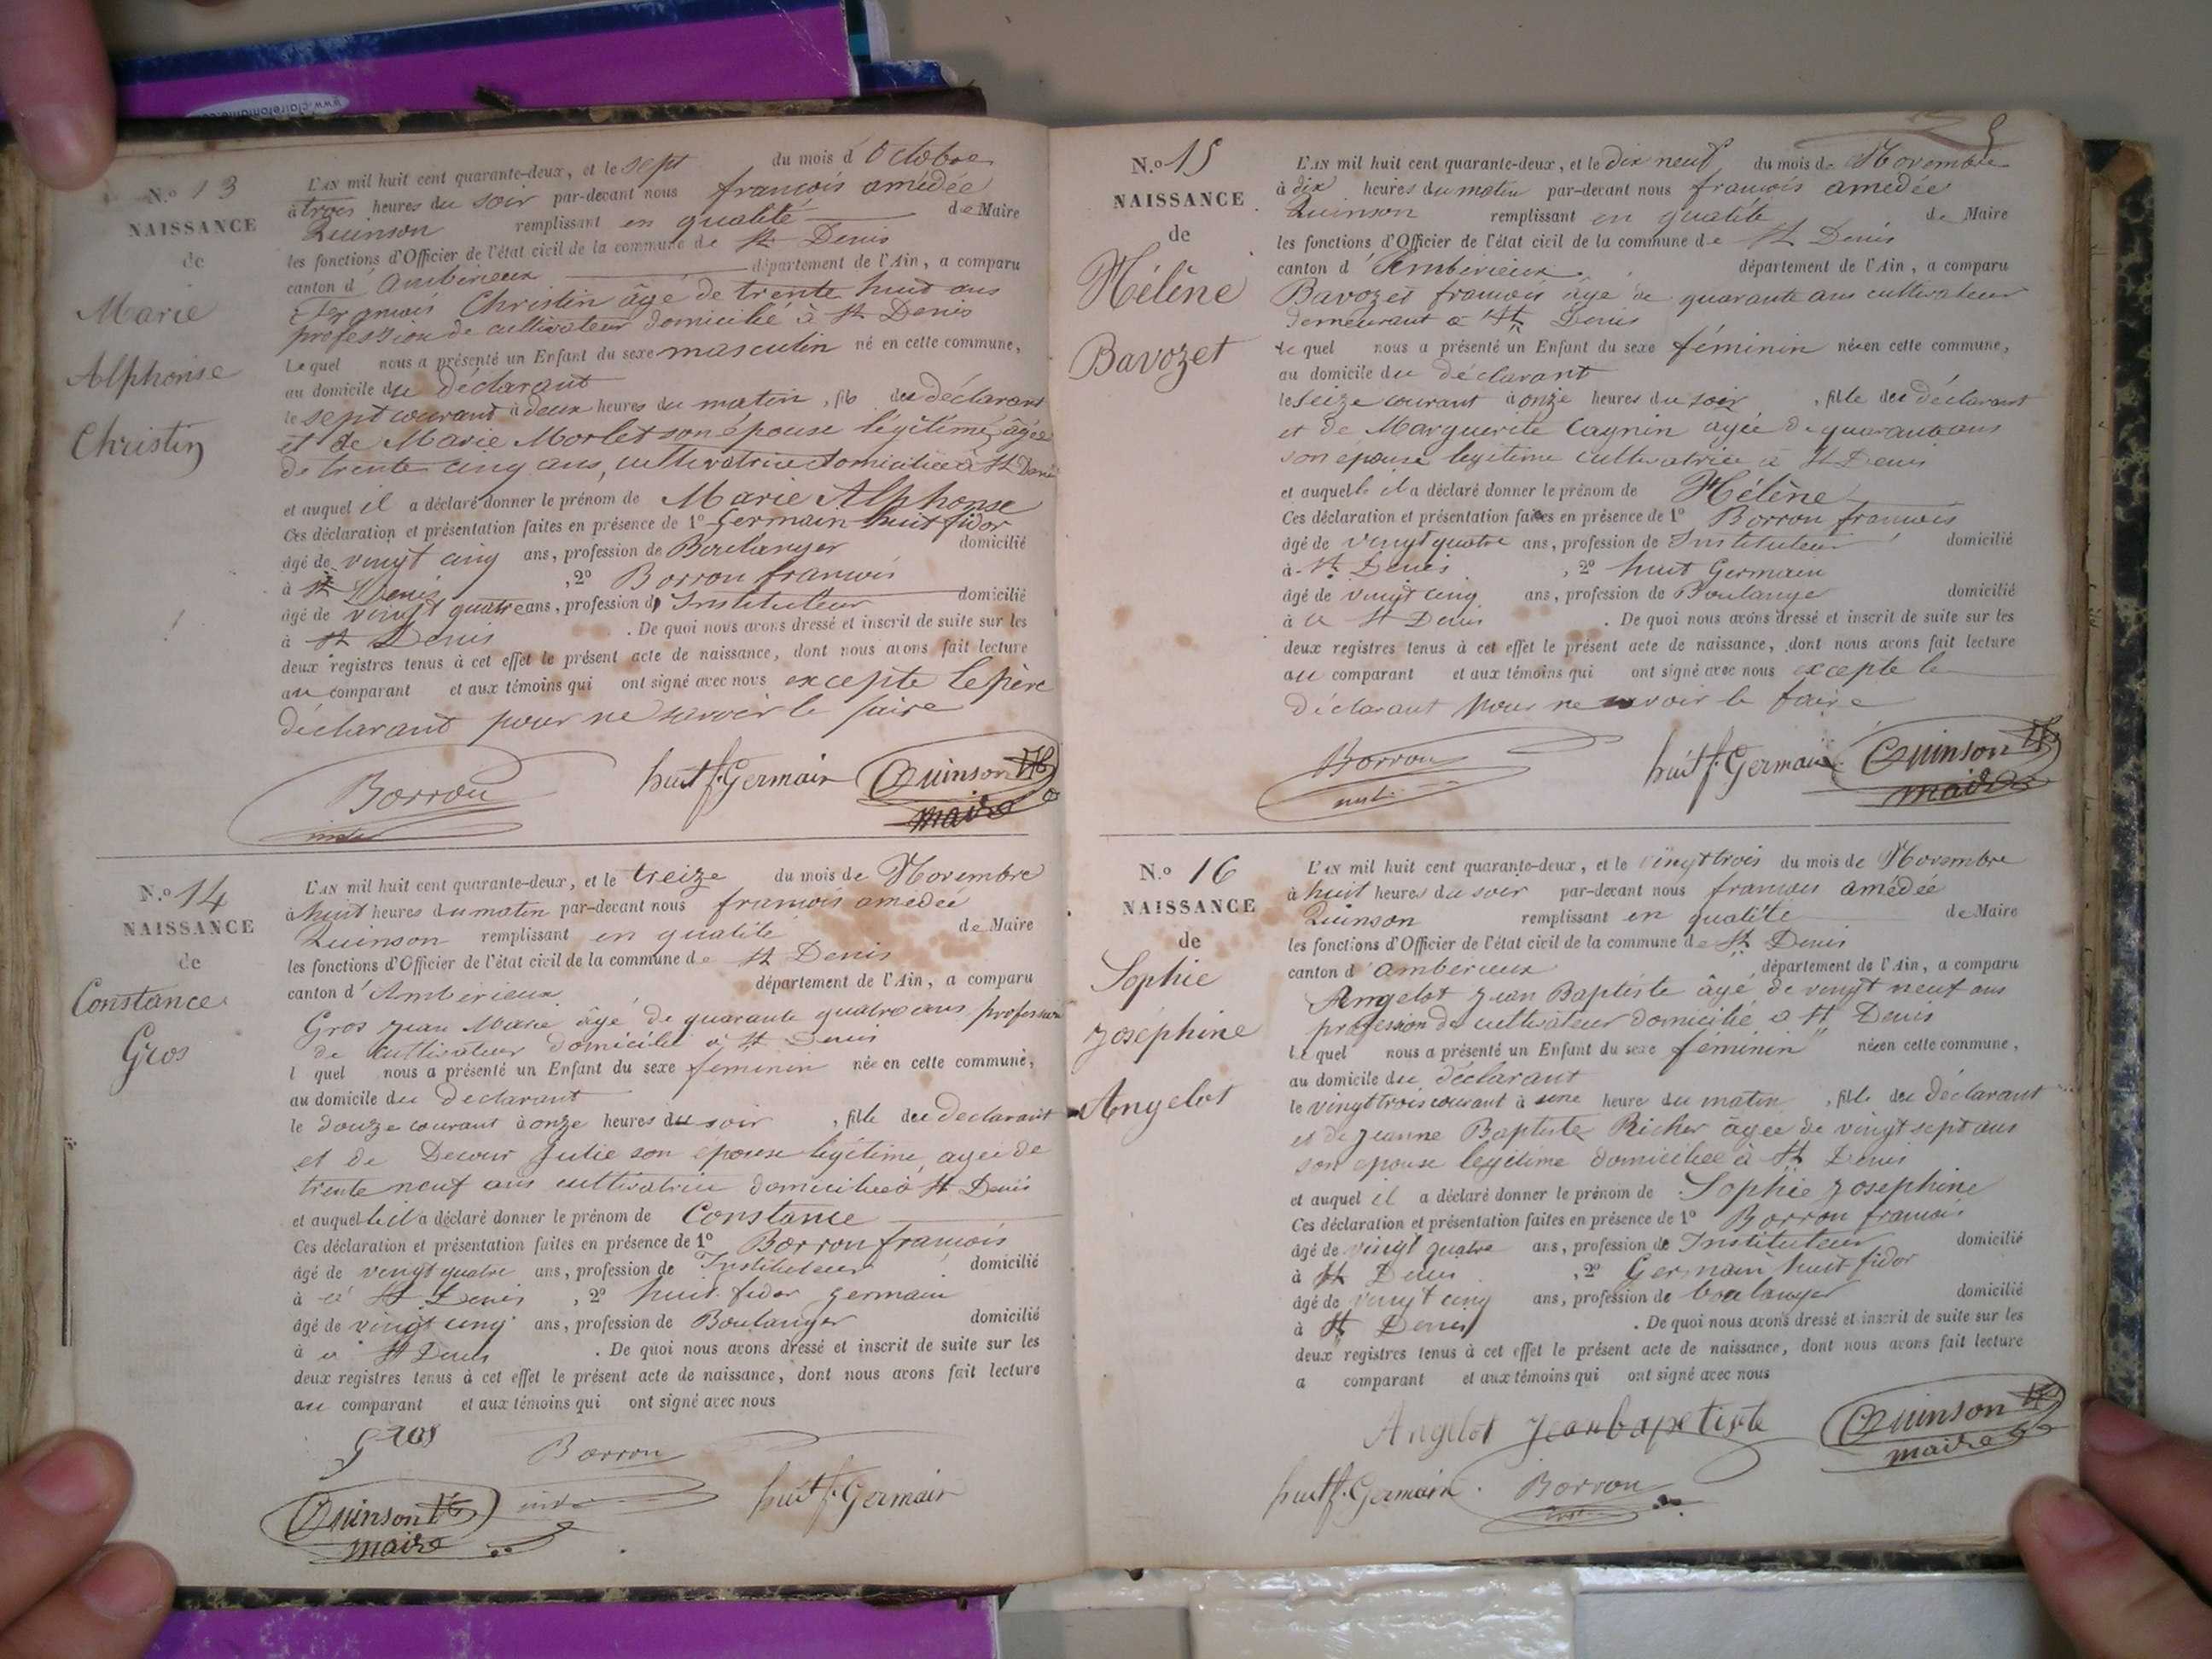 www.clairefontaine.
N.o 13
NAISSANCE
de
Marie
Alphonse
Christin
L'AN mil huit cent quarante-deux, et le sept du mois d'Octobre
à trois heures du soir par-devant nous françois amedée
Quinson remplissant en qualité de Maire
les fonctions d'Officier de l'état civil de la commune de St Denis
canton d'Ambérieux département de l'Ain, a comparu
françois Christin âgé de trente huit ans
profession de cultivateur domicilié à St Denis
Lequel nous a présenté un Enfant du sexe masculin né en cette commune,
au domicile du déclarant
le sept courant à deux heures du matin, fils du déclarant
et de Marie Morlet son épouse légitime, agée
de trente cinq ans, cultivatrice domiciliée à St Denis
et auquel il a déclaré donner le prénom de Marie Alphonse
Ces déclaration et présentation faites en présence de 1º Germain huit fidor
âgé de vingt cinq ans, profession de Boulanger domicilié
à St Denis, 2º Borron francois
âgé de vingt quatre ans, profession d'Instituteur domicilié
à St Denis. De quoi nous avons dressé et inscrit de suite sur les
deux registres tenus à cet effet le présent acte de naissance, dont nous avons fait lecture
au comparant et aux témoins qui ont signé avec nous excepte le père
déclarant pour ne savoir le faire
Borron huit f. Germain Quinson
maire
N.o 14
NAISSANCE
de
Constance
Gros
L'AN mil huit cent quarante-deux, et le treize du mois de Novembre
à huit heures du matin par-devant nous francois amedée
Quinson remplissant en qualité de Maire
les fonctions d'Officier de l'état civil de la commune de St Denis
canton d'Ambérieux département de l'Ain, a comparu
Gros jean Marie âgé de quarante quatre ans profession
de cultivateur domicilié à St Denis
l quel nous a présenté un Enfant du sexe féminin née en cette commune,
au domicile du declarant
le douze courant à onze heures du soir, fille du declarant
et de Decour Julie son épouse légitime, agée de
trente neuf ans cultivatrice domiciliée à St Denis
et auquelle il a déclaré donner le prénom de Constance
Ces déclaration et présentation faites en présence de 1º Borron francois
âgé de vingt quatre ans, profession de Instituteur domicilié
à St Denis, 2º huit fidor germain
âgé de vingt cinq ans, profession de Boulanger domicilié
à St Denis. De quoi nous avons dressé et inscrit de suite sur les
deux registres tenus à cet effet le présent acte de naissance, dont nous avons fait lecture
au comparant et aux témoins qui ont signé avec nous
gros Borron
Quinson huit f. Germain
maire
5
N.o 15
NAISSANCE
de
Hélène
Bavozet
L'AN mil huit cent quarante-deux, et le dix neuf du mois de Novembre
à dix heures du matin par-devant nous francois amedée
Quinson remplissant en qualité de Maire
les fonctions d'Officier de l'état civil de la commune de St Denis
canton d'Ambérieux département de l'Ain, a comparu
Bavozet francois âgé de quarante ans cultivateur
demeurant à St Denis
lequel nous a présenté un Enfant du sexe féminin née en cette commune,
au domicile du déclarant
le seize courant à onze heures du soir, fille du déclarant
et de Marguerite Cagnin agée de quarante ans
son épouse légitime cultivatrice à St Denis
et auquelle il a déclaré donner le prénom de Hélène
Ces déclaration et présentation faites en présence de 1º Borron francois
âgé de vingt quatre ans, profession de Instituteur domicilié
à St Denis, 2º huit Germain
âgé de vingt cinq ans, profession de Boulanger domicilié
à St Denis. De quoi nous avons dressé et inscrit de suite sur les
deux registres tenus à cet effet le présent acte de naissance, dont nous avons fait lecture
au comparant et aux témoins qui ont signé avec nous excepte le
déclarant pour ne savoir le faire
Borron huit f. Germain Quinson
maire
N.o 16
NAISSANCE
de
Sophie
Joséphine
Angelot
L'AN mil huit cent quarante-deux, et le vingt trois du mois de Novembre
à huit heures du soir par-devant nous francois amédée
Quinson remplissant en qualité de Maire
les fonctions d'Officier de l'état civil de la commune de St Denis
canton d'ambérieux département de l'Ain, a comparu
Angelot jean Baptiste âgé de vingt neuf ans
profession de cultivateur domicilié à St Denis
Lequel nous a présenté un Enfant du sexe féminin née en cette commune,
au domicile du déclarant
le vingt trois courant à une heure du matin, fille du déclarant
et de jeanne Baptiste Richer âgée de vingt sept ans
son épouse légitime domiciliée à St Denis
et auquel il a déclaré donner le prénom de Sophie Josephine
Ces déclaration et présentation faites en présence de 1º Borron francois
âgé de vingt quatre ans, profession de Instituteur domicilié
à St Denis, 2º Germain huit fidor
âgé de vingt cinq ans, profession de boulanger domicilié
à St Denis. De quoi nous avons dressé et inscrit de suite sur les
deux registres tenus à cet effet le présent acte de naissance, dont nous avons fait lecture
a comparant et aux témoins qui ont signé avec nous
Angelot jean bapetiste Quinson
maire
huit f. Germain. Borron